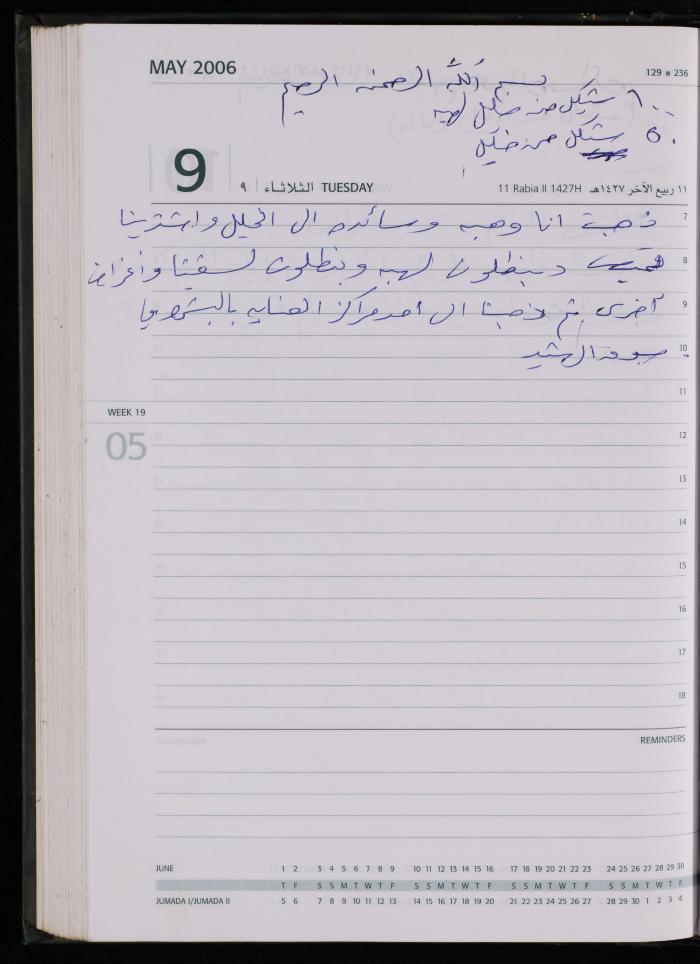 MAY 2006
129 ■ 236
بسم الله الرحمن الرحيم
١٠٠ شيكل من خليل لهبه
٥٠ شيكل من خليل
9
٩ الثلاثاء TUESDAY
11 Rabia II 1427H ١١ ربيع الآخر ١٤٢٧هـ
7 ذهبت انا وهبه وسائده الى الخليل واشترينا
8 وبنطلون لهبه وبنطلون وأغراض
9 أخرى ثم ذهبنا الى احد مراكز العنايه بالبشره
10
11
WEEK 19
05
12
13
14
15
16
17
18
REMINDERS
JUNE 1 2 3 4 5 6 7 8 9 10 11 12 13 14 15 16 17 18 19 20 21 22 23 24 25 26 27 28 29 30
T F S S M T W T F S S M T W T F S S M T W T F S S M T W T F
JUMADA I/JUMADA II 5 6 7 8 9 10 11 12 13 14 15 16 17 18 19 20 21 22 23 24 25 26 27 28 29 30 1 2 3 4